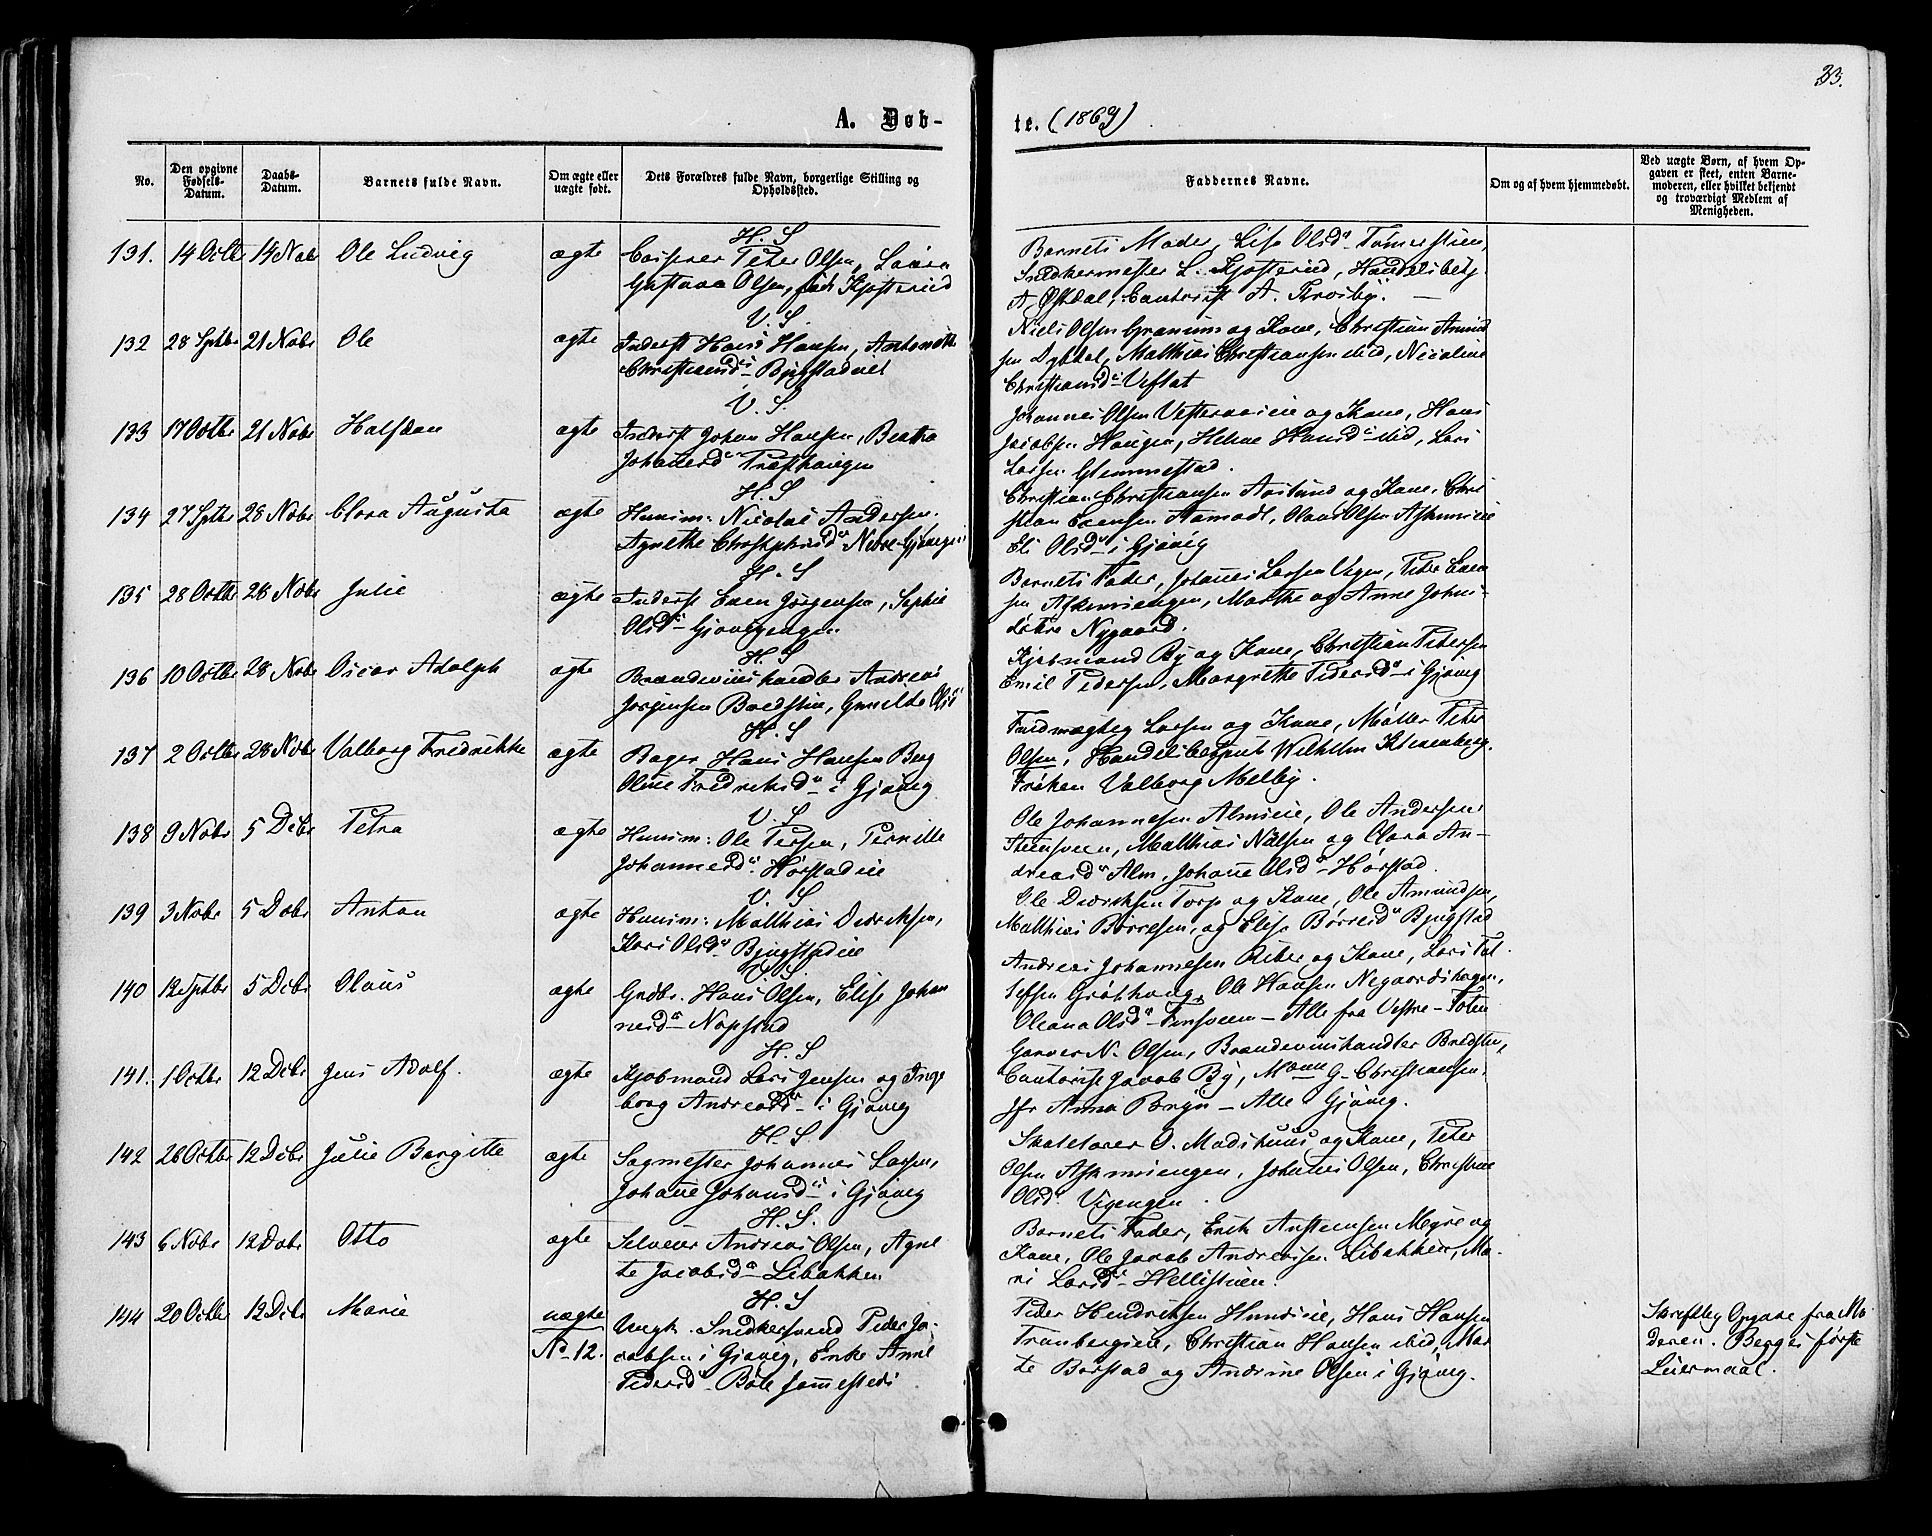 33.
A. Døb-
te. (1869)
No.
Den opgivne Fødsels-Datum.
Daabs-Datum.
Barnets fulde Navn.
Om ægte eller uægte født.
Dets Forældres fulde Navn, borgerlige Stilling og Opholdssted.
Faddernes Navne.
Om og af hvem hjemmedøbt.
Ved uægte Børn, af hvem Opgaven er skeet, enten Barnemoderen, eller hvilket bekjendt og troværdigt Medlem af Menigheden.
H. S
131. 14 Octbr 14 Nobr Ole Ludvig ægte Casper Peter Olsen, Lovisa
Gustava Olsen, født Kjosterud
Barnets Moder, Lise Olsd. Tømrestuen,
Snedkermester L. Kjosterud, Handelsbetj.
A. Østdal, Cantorist A. Frøisby. —
V. S.
132 28 Sptbr 21 Nobr Ole ægte Inderst Hans Hansen, Antonette
Christiansd. Bjugstadeiet
Niels Olsen Granum og Kone, Christian Amund
sen Dybdal, Matthias Christiansen ibid, Nicoline
Christiansd. Veflat
V. S.
133 17 Octbr 21 Nobr Halfdan ægte Inderst Johan Hansen, Beatha
Johansd. Præsthaugen
Johannes Olsen Vesteraaseie og Kone, Hans
Jacobsen Haugen, Helene Hansd. ibid, Lars
Larsen Glemmestad.
H. S
134 27 Sptbr 28 Nobr Clara Augusta ægte Huusm: Nicolai Andersen,
Agnethe Christophersd. Nedre-Gjøvigei
Christian Christiansen Aaslund og Kone, Chri
stian Evensen Aamodt, Olaus Olsen Askimeie
Eli Olsd. i Gjøvig
H. S
135 28 Octbr 28 Nobr Julie ægte Inderst Even Jørgensen, Sophie
Olsd. Gjøvigengen
Barnets Fader, Johannes Larsen Vigen, Peter Even
sen Askimengen, Marthe og Anne Johns-
døtre Nygaard.
H. S
136 10 Octbr 28 Nobr Oscar Adolph ægte Brændeviinshandler Andreas
Jørgensen Bredstue, Gunilde Olsd.
Kjøbmand By og Kone, Christian Petersen
Emil Pedersen, Margrethe Pedersd. i Gjøvig
H. S
137 2 Octbr 28 Nobr Valborg Fredrikke ægte Bager Hans Hansen Berg
Oline Fredriksd. i Gjøvig
Fuldmægtig Larsen og Kone, Møller Peter
Olsen, Handelsbetjent Wilhelm Kleneberg.
Frøken Valborg Melby.
V. S
138 9 Nobr 5 Debr Petra ægte Huusm: Ole Persen, Pernille
Johannesd. Hørstadeie
Ole Johannesen Almseie, Ole Andersen
Steensveen, Matthias Nielsen og Clara An-
dreasd. Alm, Johane Olsd. Hørstad
V. S
139 3 Nobr 5 Debr Anton ægte Huusm: Matthias Dideriksen,
Kari Olsd. Bjugstadeie
Ole Dideriksen Torp og Kone, Ole Amundsen,
Matthias Børresen, og Elise Børresd. Bjugstad
V. S
140 12 Sptbr 5 Debr Olaus ægte Grdbr. Hans Olsen, Elise Johan
nesd. Nøpstad
Andreas Johannesen Ribe og Kone, Lars Tol
lefsen Grøthaug, Ole Hansen Negaardshagen,
Oleana Olsd. Finsveen — Alle fra Vestre-Toten
H. S
141. 1 Octbr 12 Debr Jens Adolf. ægte Kjøbmand Lars Jensen og Inge
borg Andreasd. i Gjøvig
Garver N. Olsen, Brændeviinshandler Bredstu,
Cantorist Jacob By, Mane G. Christiansen,
Jfr Anna Bryn — Alle Gjøvig.
H. S
142 26 Octbr 12 Debr Julie Bergitte ægte Sagmester Johannes Larsen,
Johane Johansd. i Gjøvig
Skolelærer O. Madshuus og Kone, Peter
Olsen Askimengen, Johannes Olsen, Christine
Olsd. Vigengen.
H. S.
143 6 Nobr 12 Debr Otto ægte Selveier Andreas Olsen, Agne
te Jacobsd. Libakken
Barnets Fader, Erik Ansteensen Megre og
Kone, Ole Jacob Andreasen Libakken, Ma-
ri Larsd. Hellistuen.
H. S
144 20 Octbr 12 Debr Marie uægte
No 12.
Ungk. Snedkersvend Peder Ja-
cobsen i Gjøvig, Enke Anne
Pedersd. Bøle sammesteds
Peder Hendriksen Hunseie, Hans Hansen
Tranbergseie, Christian Hansen ibid, Mar
te Børstad og Andrine Olsen i Gjøvig.
Skriftlig Opgave fra Mo
deren. Begges første
Leiermaal.